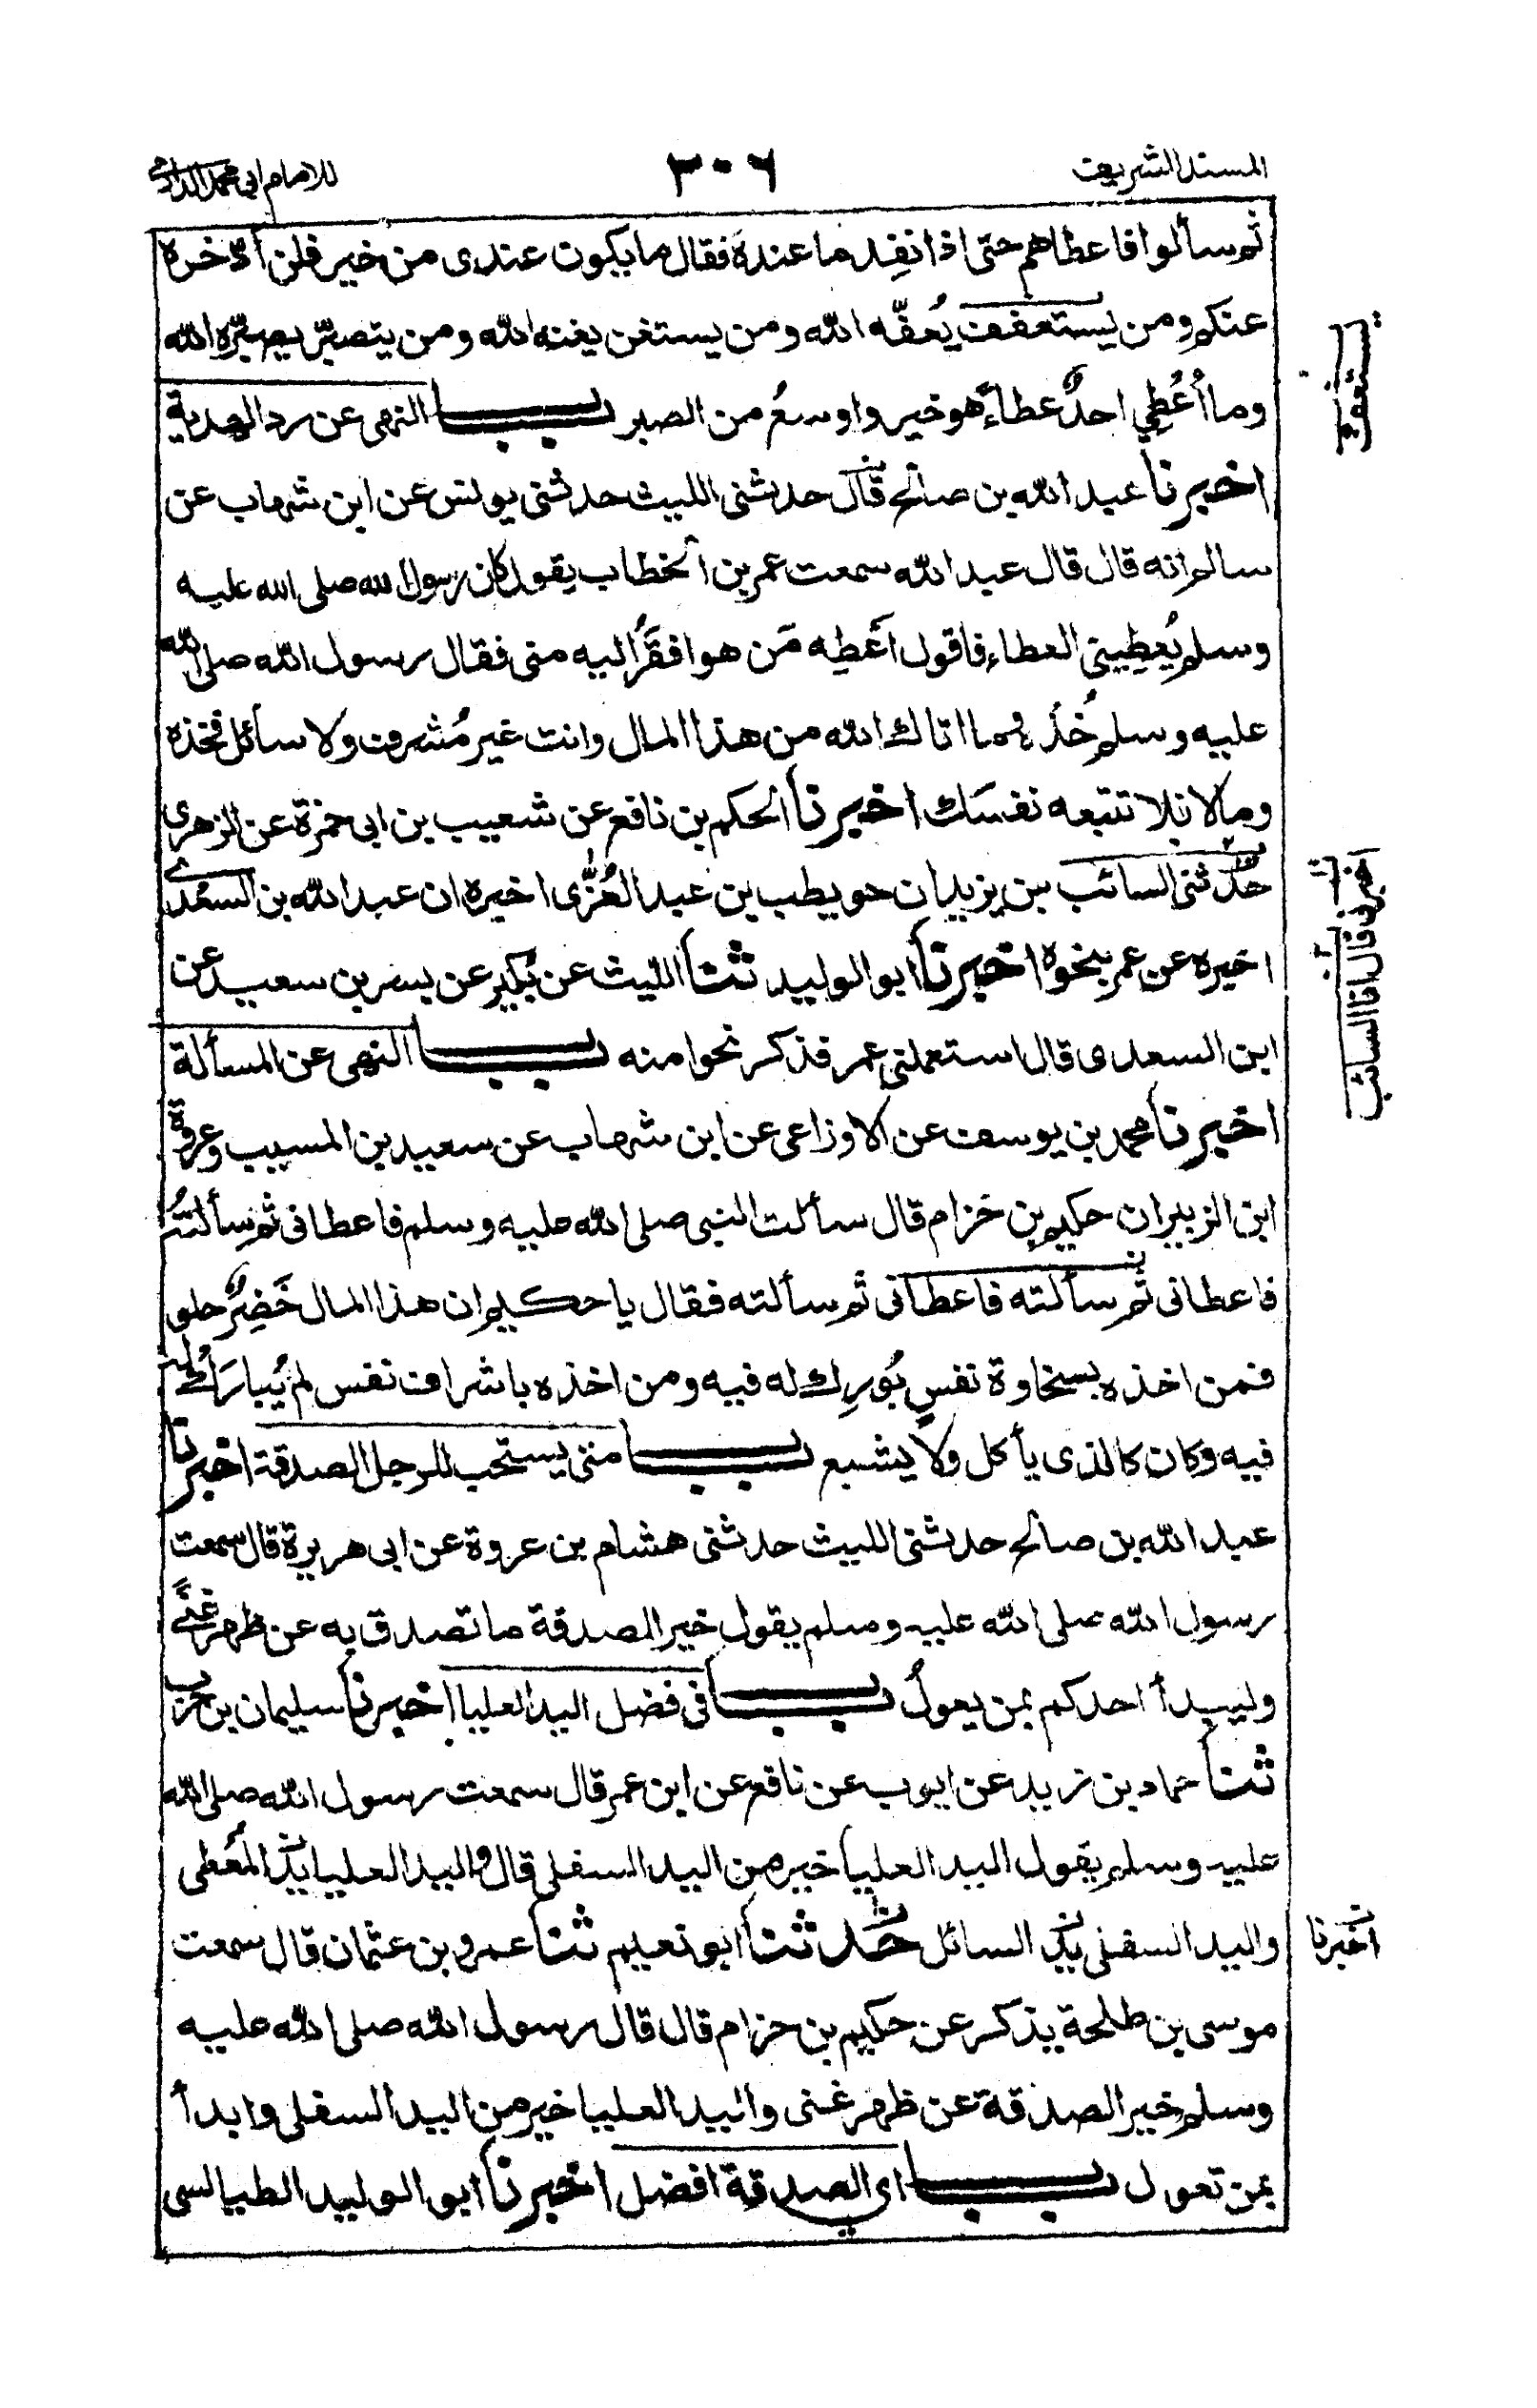 المسند الشريف ٣٠٦ للامام ابي محمد الدارمي
ثم سألوا فاعطاهم حتى اذا نفِد ما عنده فقال ما يكون عندى من خير فلن أدّخره
عنكم ومن يستعفف يُعفّه الله ومن يستغن يغنه الله ومن يتصبّر يصبّره الله
وما أُعُطِي احدٌ عطاءً هو خير واوسعُ من الصبر باب النهى عن رد الهدية
اخبرنا عبد الله بن صالح قال حدثنى الليث حدثنى يونس عن ابن شهاب عن
سالم انه قال قال عبد الله سمعت عمر بن الخطاب يقول كان رسول الله صلى الله عليه
وسلم يُعطِينى العطاء فاقول اَعْطِه مَن هو افقَرُ اليه منى فقال رسول الله صلى الله
عليه وسلم خُذْ وما اتاك الله من هذا المال وانت غير مُشرف ولا سائل فخذه
وما لا فلا تتبعه نفسَك اخبرنا الحكم بن نافع عن شعيب بن ابى حمزة عن الزهرى
حدثنى السائب بن يزيد ان حويطب بن عبد العُزّٰى اخبره ان عبد الله بن السعْدى
اخبره عن عمر بنحوه اخبرنا ابو الوليد ثنا الليث عن بُكير عن بسر بن سعيد عن
ابن السعدى قال استعملنى عمر فذكر نحوا منه باب النهى عن المسألة
اخبرنا محمد بن يوسف عن الاوزاعى عن ابن شهاب عن سعيد بن المسيب وعروة
ابن الزبير ان حكيم بن حَزام قال سألت النبى صلى الله عليه وسلم فاعطانى ثم سألتُه
فاعطانى ثم سألته فاعطانى ثم سألته فقال يا حكيم ان هذا المال خَضِرٌ حلو
فمن اخذه بسخاوة نفسٍ بُورِك له فيه ومن اخذه باشراف نفس لم يُبارَكْ له
فيه وكان كالذى يأكل ولا يشبع باب متى يستحب للرجل الصدقة اخبرنا
عبد الله بن صالح حدثنى الليث حدثنى هشام بن عروة عن ابى هريرة قال سمعت
رسول الله صلى الله عليه وسلم يقول خير الصدقة ما تصدق به عن ظهر غنًى
وليبدأ احدكم بمن يعولُ باب فى فضل اليد العليا اخبرنا سليمان بن حرب
ثنا حماد بن زيد عن ايوب عن نافع عن ابن عمر قال سمعت رسول الله صلى الله
عليه وسلم يقول اليد العليا خير من اليد السفلى قال واليد العليا يد المُعْطى
واليد السفلى يد السائل حدثنا ابو نعيم ثنا عمرو بن عثمان قال سمعت
موسى بن طلحة يذكر عن حكيم بن حزام قال قال رسول الله صلى الله عليه
وسلم خير الصدقة عن ظهر غنى واليد العليا خير من اليد السفلى وابدأ
بمن تعول باب اي الصدقة افضل اخبرنا ابو الوليد الطيالسى
يستعفف
اخبرنى قال انا السائب
اخبرنا